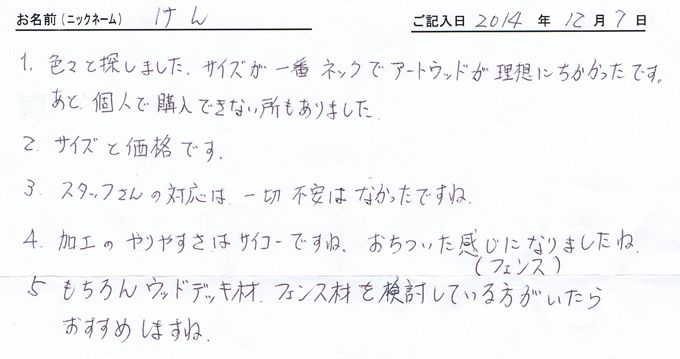 お名前(ニックネーム) けん ご記入日 2014 年 12 月 7 日
1. 色々と探しました. サイズが一番 ネックで アートウッドが 理想にちかかったです。
あと、個人で購入できない所もありました.
2. サイズと価格です.
3. スタッフさんの対応は、一切 不安は なかったですね.
4. 加工の やりやすさは サイコーですね. おちついた感じになりましたね.
(フェンス)
5 もちろん ウッドデッキ材. フェンス材を検討している方がいたら
おすすめしますね.